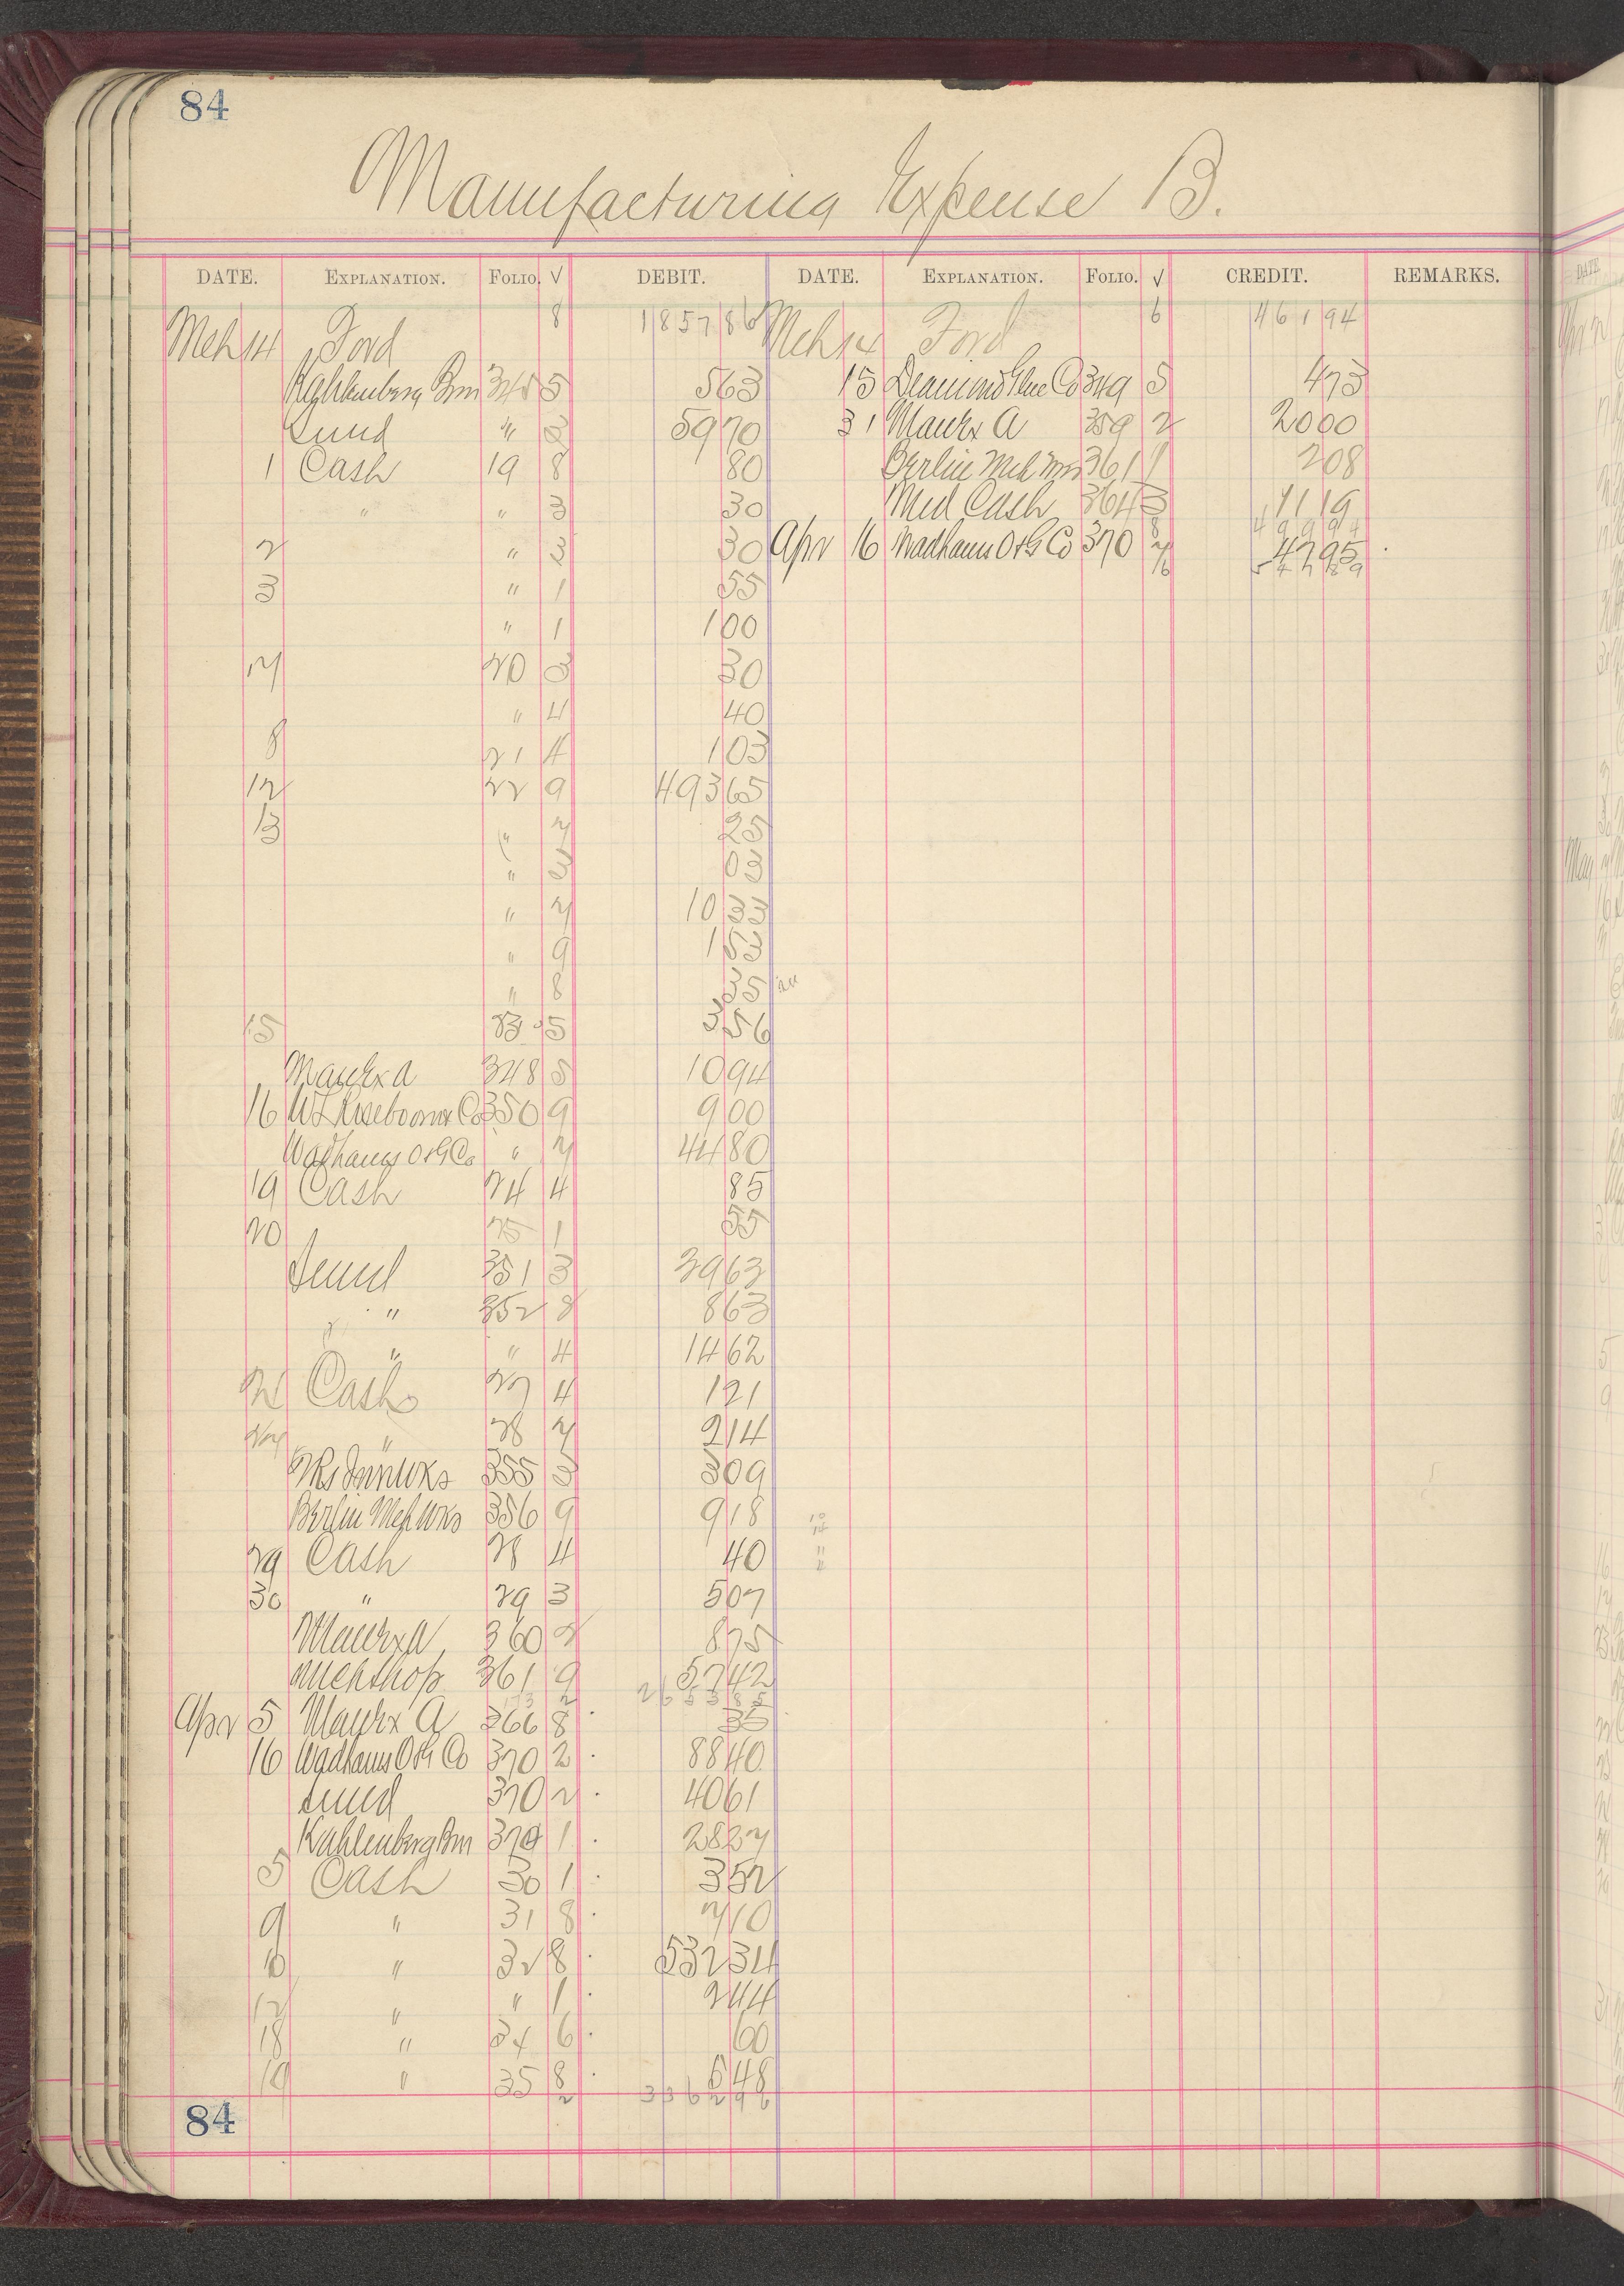 84
Manufacturing Expense B.
DATE. EXPLANATION. FOLIO. √ DEBIT. DATE. EXPLANATION. FOLIO. √ CREDIT. REMARKS.
Mch 14 Ford 8 1857 86 Mch 14 Ford 6 461 94
Kahlenberg Bros 348 5 5 63 15 Diamond Glue Co 349 5 4 73
Sund " 59 70 31 Manfx A 359 2 20 00
1 Cash 19 8 80 Berlin Mch 361 1 2 08
" " 3 30 Mid Cash 364 3 11 19
499 94
2 " 3 30 Apr 16 Wadhams O & G Co 370 47 95
3 " 1 55 547 89
" 1 1 00
20 3 30
" 4 40
8 21 4 1 03
12 22 9 493 65
13 " 25
" 3 03
" 10 33
" 9 1 53
" 8 35
15 23 5 3 56
Manfx A 348 5 10 94
16 Roseboom Co 350 9 9 00
Wadhams O & G Co " 44 80
19 Cash 24 4 85
20 25 1 55
Sund 351 3 39 63
" 352 8 8 63
" " 4 14 62
Cash 27 4 1 21
" 28 2 14
355 3 3 09
Berlin Mch Wks 356 9 9 18
29 Cash 28 4 40
30 " 29 3 5 07
Manfx A 360 2 8 75
Mch Shop 361 9 57 42
2653 85
Apr 5 Manfx A 366 8 35
16 Wadhams O & G Co 370 2 88 40
Sund 370 2 40 61
Kahlenberg Bros 370 1 28 27
5 Cash 30 1 3 52
9 " 31 8 7 10
10 " 32 8 532 34
" " 1 2 44
18 " 34 6 60
19 " 35 8 5 48
3362 96
84